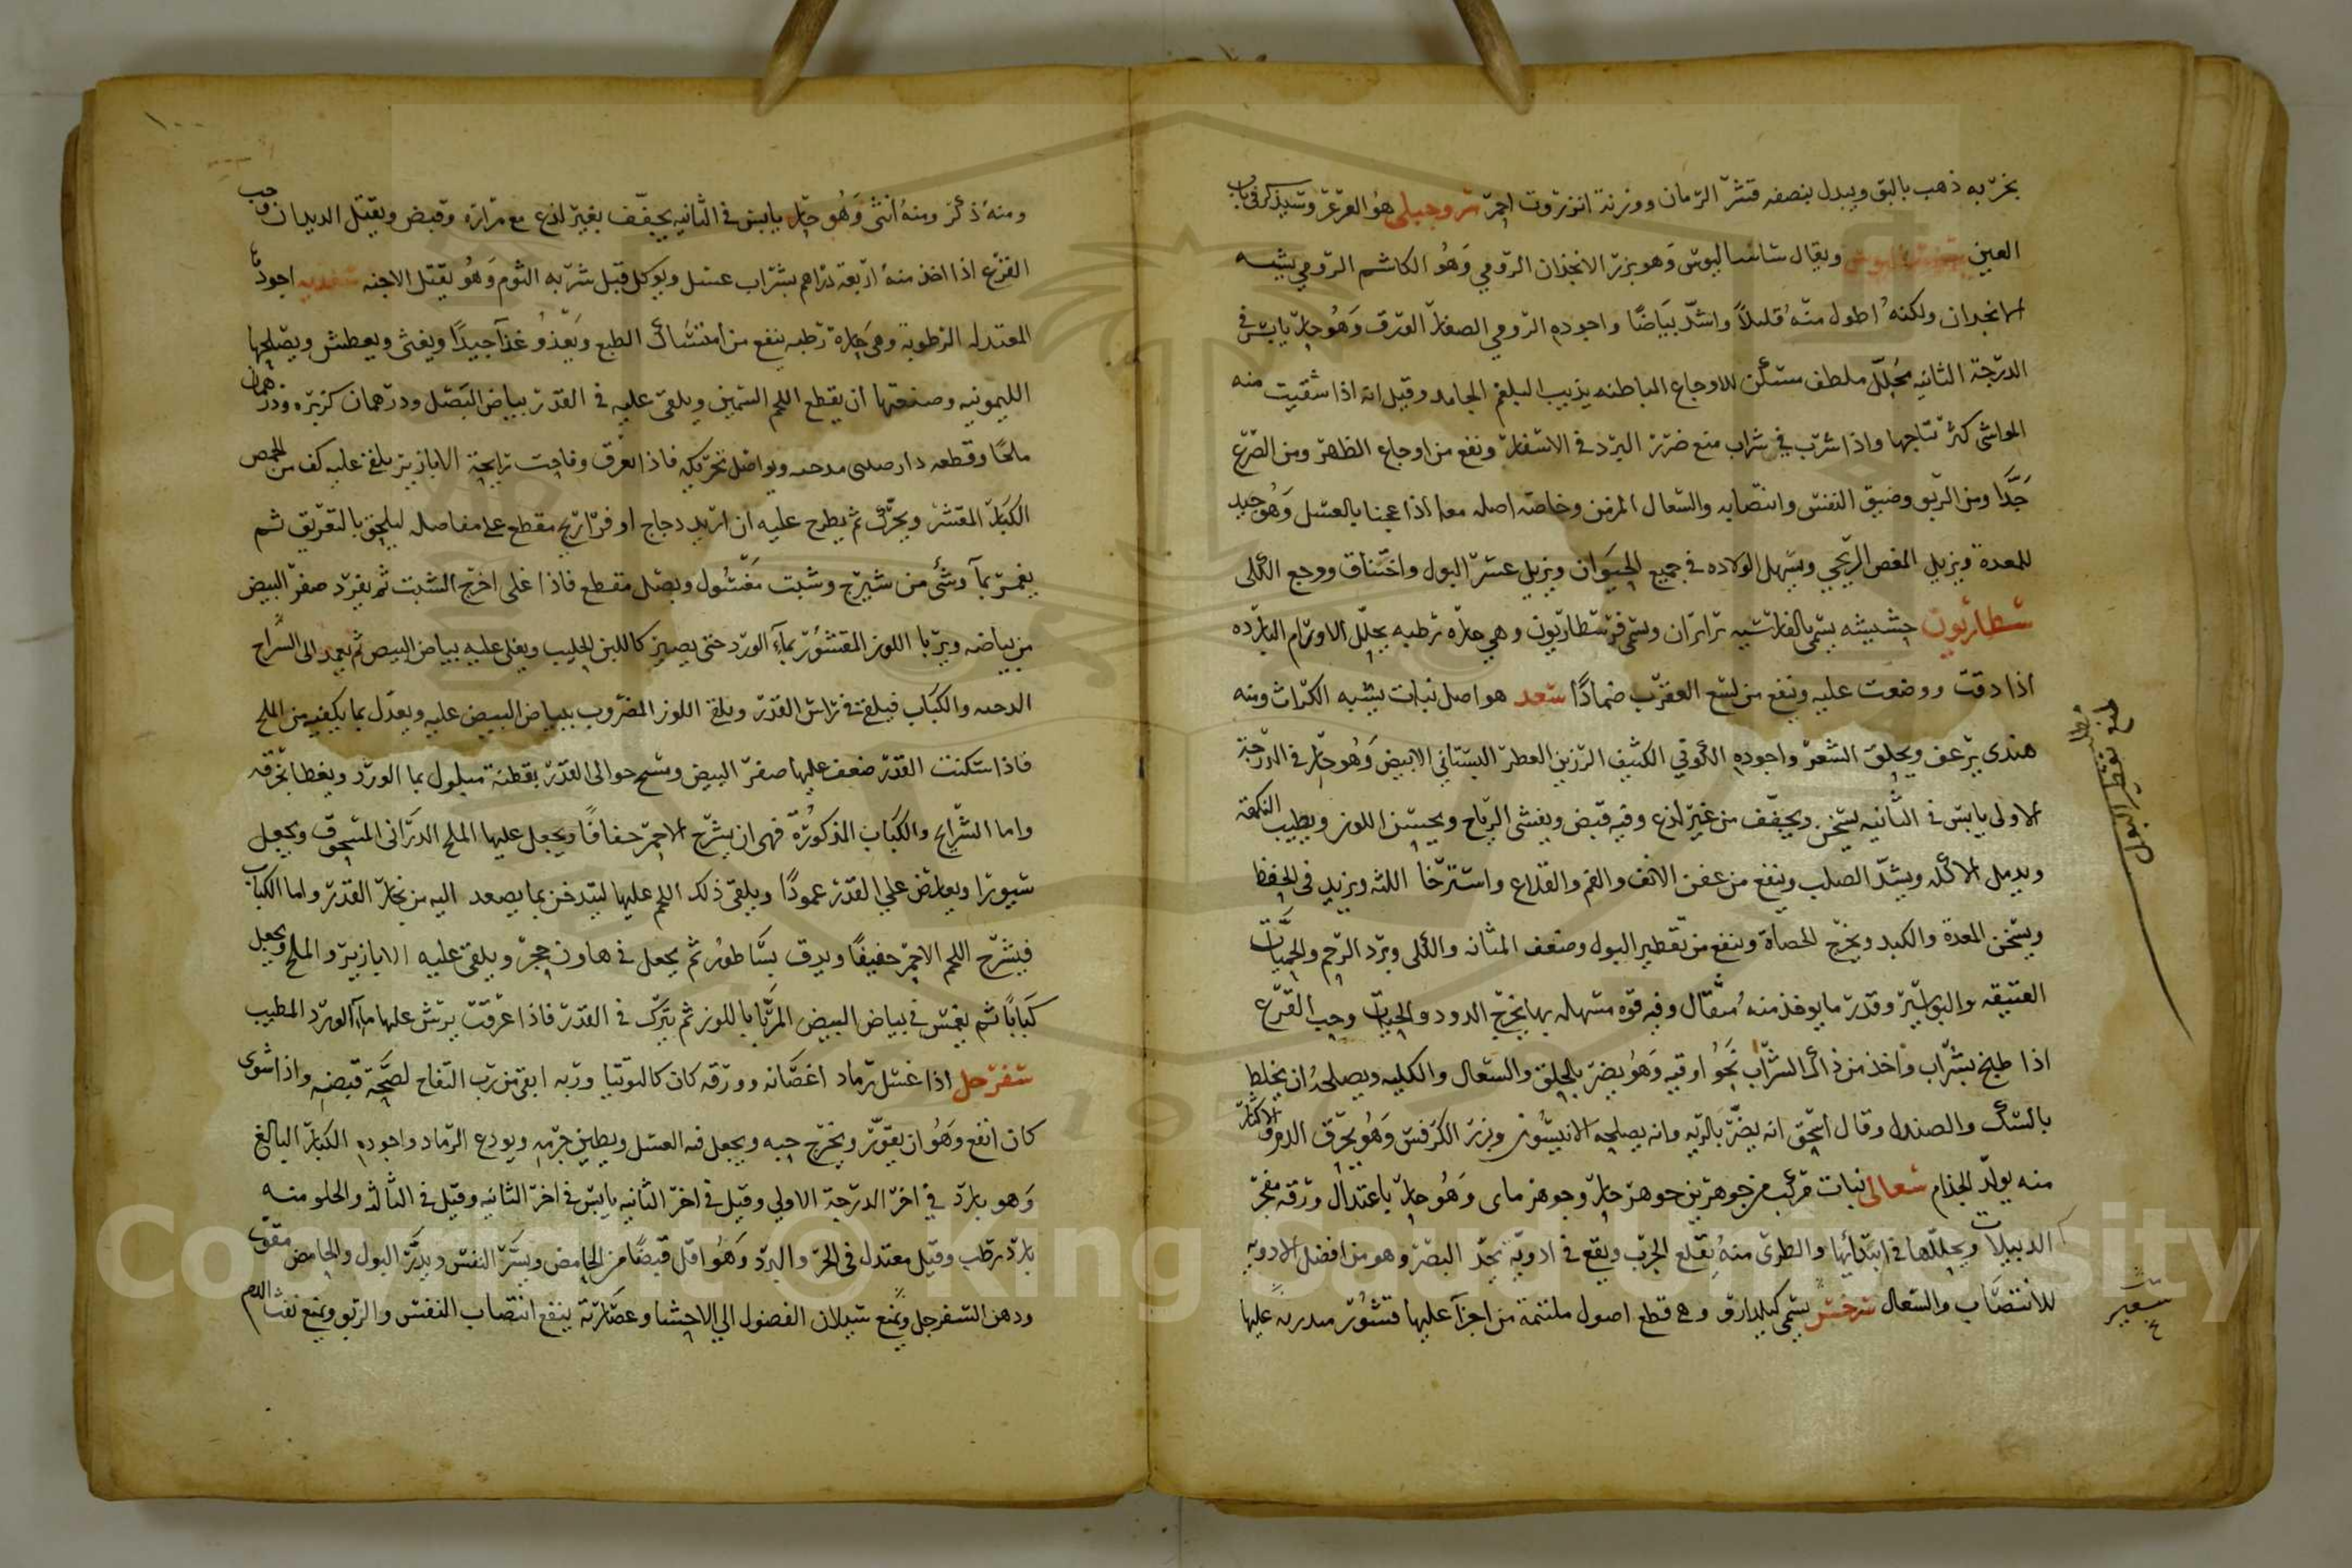 بخر به ذهب بالبق ويبدل بنصفه قشر الرمان ووزنه انزروت احمر سرو جبلى هو العرعر وسيذكر فى باب
العين ويقال ساساليوس وهو بزر الانجذان الرومي وهو الكاشم الرومي يشبه
الانجدان ولكنه اطول منه قليلا واشد بياضا واجوده الرومي الصفار العرق وهو حار يابس في
الدرجة الثانيه محلل ملطف مسكن للاوجاع الباطنه يذيب البلغم الجامد وقيل انه اذا سقيت منه
المواشى كثر نتاجها واذا شرب في شراب منع ضرر البرد في الاسفار ونفع من اوجاع الظهر ومن الصرع
جدا ومن الربو وضيق النفس وانتصابه والسعال المزمن وخاصة اصله معا اذا عجنا بالعسل وهو جيد
للمعدة ويزيل المغص الريحي ويسهل الولاده في جميع الحيوان ويزيل عسر البول واختناق ووجع الكلى
سطاريون حشيشه يسمى بالفارسيه وسمى فرسطاريون وهي حاره رطبه يحلل الاورام البارده
اذا دقت ووضعت عليه وينفع من لسع العقرب ضمادا سعد هو اصل نبات يشبه الكراث ومنه
هندى يرعف ويحلق الشعر واجوده الكوفي الكثيف الرزين العطر البستاني الابيض وهو حار في الدرجة
الاولى يابس في الثانيه يسخن ويجفف من غير لذع وفيه قبض ويفشى الرياح ويحسن اللون ويطيب النكهة
ويدمل الاكله ويشد الصلب وينفع من عفن الانف والفم والقلاع واسترخا اللثه ويزيد في الحفظ
ويسخن المعدة والكبد ويخرج الحصاة وينفع من تقطير البول وضعف المثانه والكلى وبرد الرحم والحميات
العتيقه والبواسير وقدر ما يوخذ منه مثقال وفيه قوه مسهله بها يخرج الدود والحيات وحب القرع
اذا طبخ بشراب واخذ من ذلك الشراب نحو اوقيه وهو يضر بالحلق والسعال والكليه ويصلحه ان يخلط
بالسك والصندل وقال اسحق انه يضر بالريه وانه يصلحه الانيسون وبزر الكرفس وهو يحرق الدم والاكثار
منه يولد الجذام سعالى نبات مركب من جوهرين جوهر حار وجوهر ماى وهو حار باعتدال ورقه مفجر
الدبيلات ويحللها في ابتدائها والطرى منه يقلع الجرب ويقع في ادوية تحد البصر وهو من افضل الادويه
للانتصاب والسعال سرخس يسمى كيلدارو وهى قطع اصول ملتئمة من اجزآ عليها قشور مدرنه عليها
سعير
ومنه ذكر ومنه انثى وهو حار يابس في الثانيه يجفف بغير لذع مع مرارة وقبض ويقتل الديدان وحب
القرع اذا اخذ منه اربعة دراهم بشراب عسل ويوكل قبل شربه الثوم وهو يقتل الاجنه سغديه اجودها
المعتدله الرطوبة وهى حارة رطبه ينفع من امتساك الطبع ويغذو غذآ جيدا ويغثى ويعطش ويصلحها
الليمونيه وصنعتها ان يقطع اللحم السمين ويلقى عليه في القدر بياض البصل ودرهمان كزبره ودرهمان
ملحا وقطعه دارصينى ويواصل تحريكه فاذا عرق وفاحت رايحة الابازير يلقى عليه كف من الحمص
الكبار المقشر ويحرك ثم يطرح عليه ان اريد دجاج او فراريج مقطع على مفاصله ليلحق بالتعريق ثم
يغمر بمآ وشى من شيرج وشبت مغسول وبصل مقطع فاذا غلى اخرج الشبت ثم يفرد صفر البيض
من بياضه ويربا اللوز المقشور بمآء الورد حتى يصير كاللبن الحليب ويغلى عليه بياض البيض ثم يعمد الى الشراح
والكباب فيلقى في راس القدر ويلقى اللوز المضروب ببياض البيض عليه ويعدل بما يكفيه من الملح
فاذا سكنت القدر ضعف عليها صفر البيض ويمسح حوالى القدر بقطنة مبلول بما الورد ويغطا بخرقه
واما الشرايح والكباب المذكورة فهى ان يشرح الاحمر خفافا ويجعل عليها الملح الدرانى المسحوق ويجعل
سيورا ويعارض على القدر عمودا ويلقى ذلك اللحم عليها ليتدخن بما يصعد اليه من بخار القدر واما الكباب
فيشرح اللحم الاحمر خفيفا ويدق بساطور ثم يجعل في هاون حجر ويلقى عليه الابازير والملح ويجعل
كبابا ثم يغمس في بياض البيض المربا باللوز ثم يترك في القدر فاذا عرقت يرش عليها مآء الورد المطيب
سفرجل اذا غسل رماد اغصانه وورقه كان كالتوتيا وربه ابقى من رب التفاح لصحة قبضه واذا شوى
كان انفع وهو ان يقور ويخرج حبه ويجعل فيه العسل ويطين جرمه ويودع الرماد واجوده الكبار البالغ
وهو بارد في اخر الدرجة الاولى وقيل في اخر الثانيه يابس في اخر الثانيه وقيل في الثالثه والحلو منه
بارد رطب وقيل معتدل في الحر والبرد وهو اقل قبضا من الحامض ويسر النفس ويدر البول والحامض مقوى
ودهن السفرجل ويمنع سيلان الفضول الي الاحشا وعصارته ينفع انتصاب النفس والربو ويمنع نفث الدم